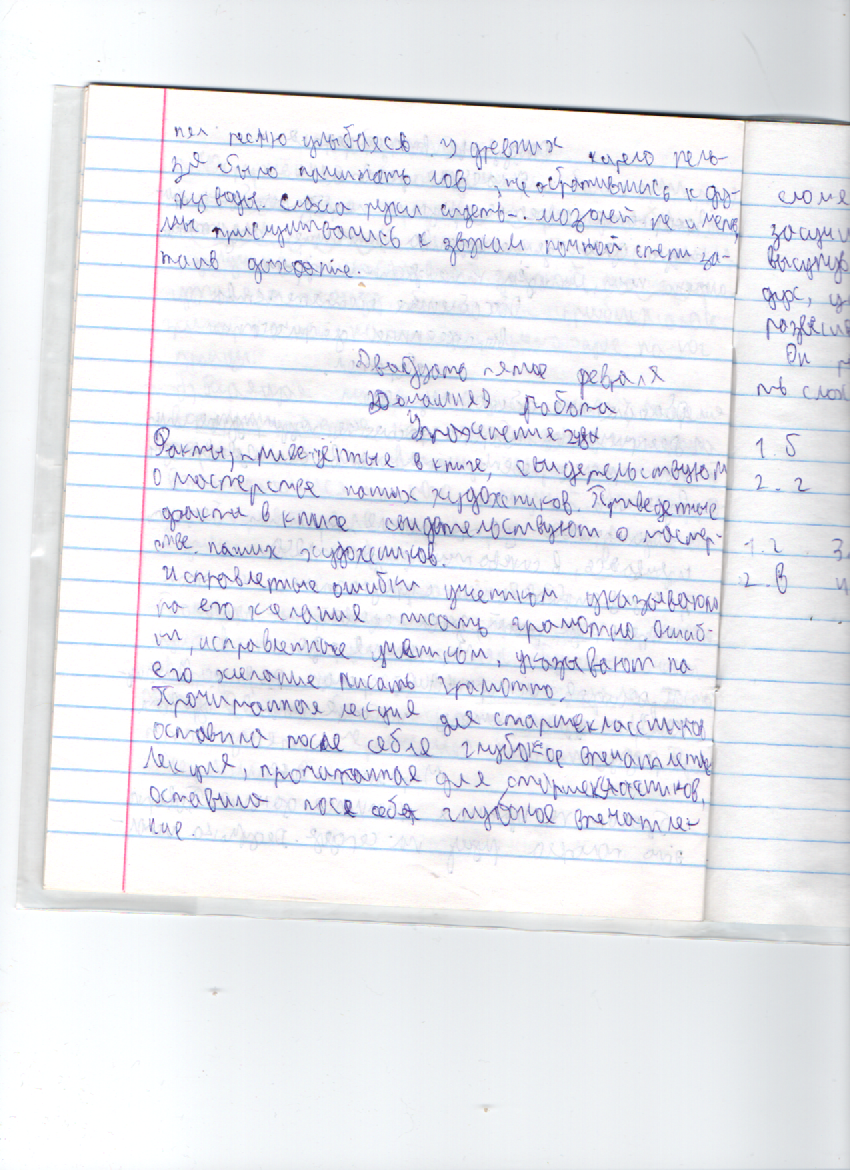 пел песню улыбаясь. У древних нель-
зя было начинать лов, не обратившись к ду-
ху воды. Слёзы мешали сидеть.
Мы прислушивались к звукам ночной степи за-
таив дыхание.
Двадцать пятое февраля
Домашняя работа
Упражнение
Факты, приведенные в книге, свидетельствуют
о мастерстве наших художников. Приведенные
факты в книге свидетельствуют о мастер-
стве наших художников.
Исправленные ошибки учеником указывают
на его желание писать грамотно. Ошиб-
ки, исправленные учеником, указывают на
его желание писать грамотно.
Прочитанная лекция для старшеклассников
оставила после себя глубокое впечатление
Лекция, прочитанная для старшеклассников,
оставила после себя глубокое впечатле-
ние.
сломе
засучи
высуну
дух, и
развеси
Он
ть слож
1. б
2. г
1. г 3.
2. в и